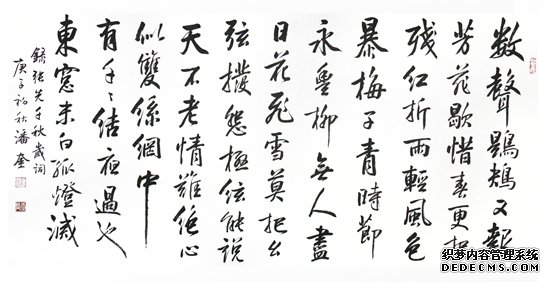 數聲鶗鴂又報
芳菲歇惜春更把
殘紅折雨輕風色
暴梅子青時節
永豐柳無人盡
日花飛雪莫把幺
弦撥怨極弦能說
天不老情難絕心
似雙絲網中
有千〻結夜過也
東窗未白孤燈滅
錄張先千秋歲詞
庚子初秋潘奎
织梦内容管理系统
DEDECMS.COM